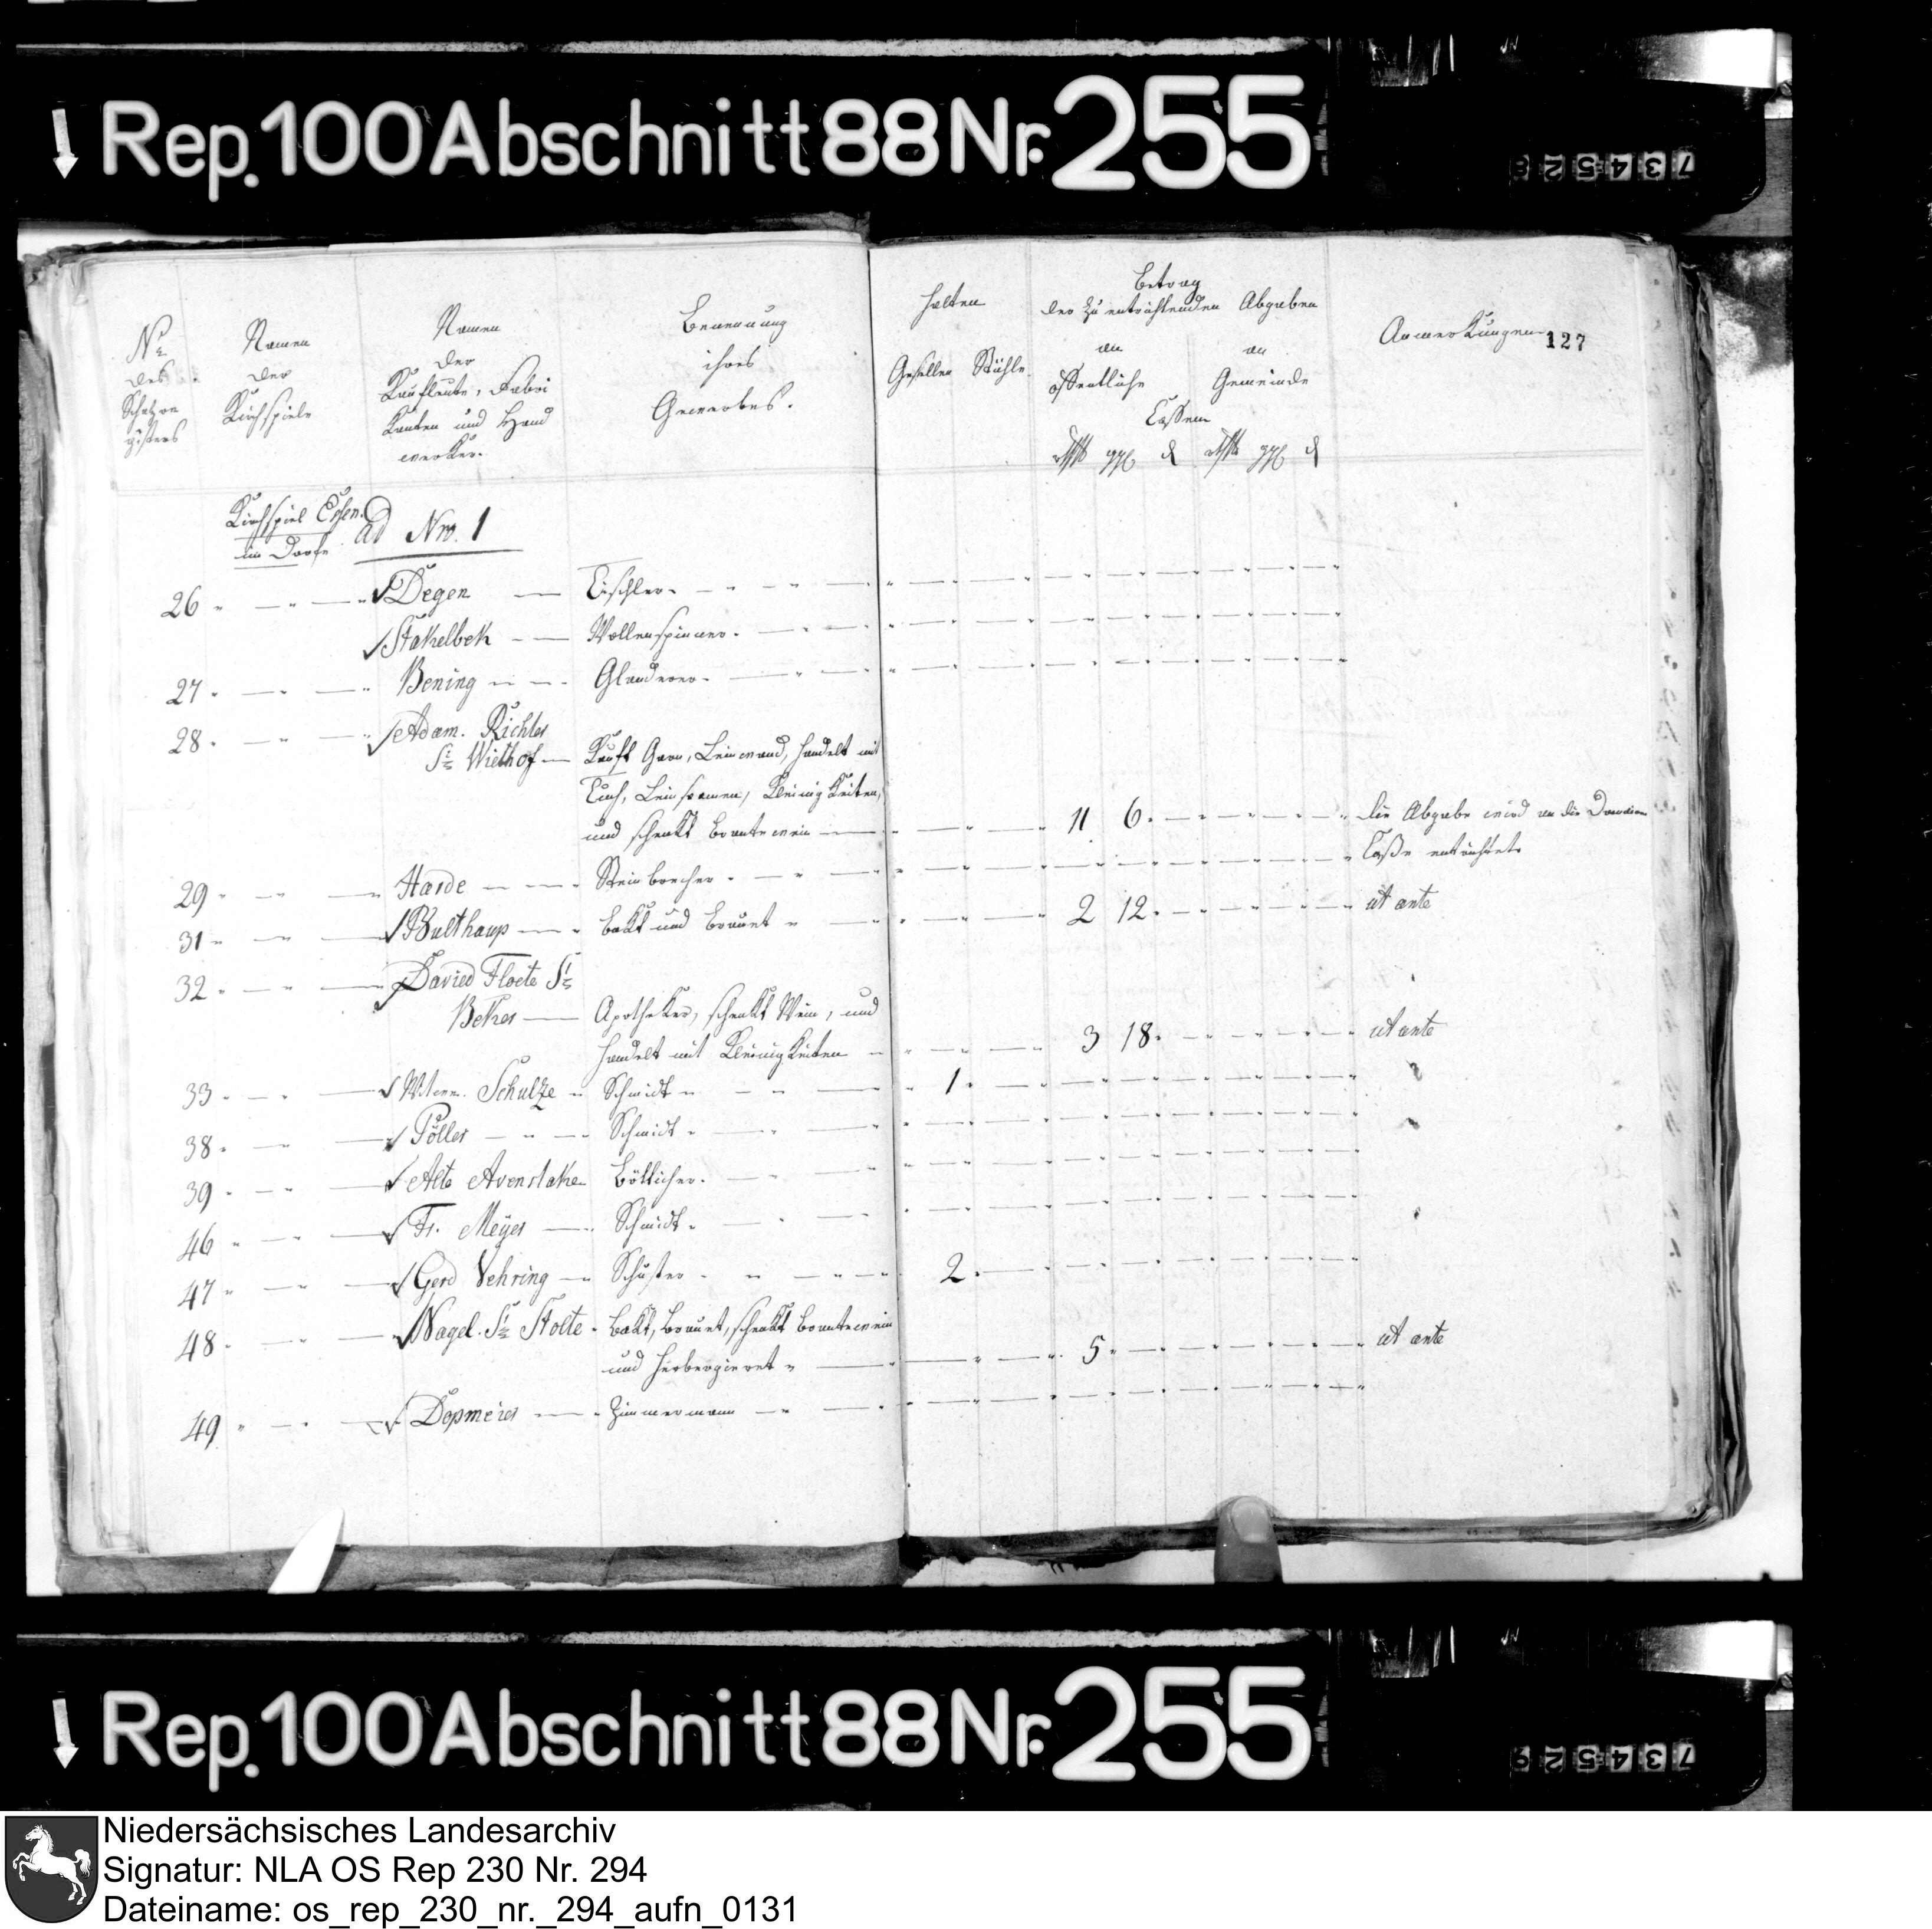 Rep. 100 Abschnitt 88 Nr. 255
734528
No
des
Schatzre
gisters
Namen
der
Kirchspiele
Namen
der
Kaufleute, Fabri
kanten und Hand
werker.
Benennung
ihres
Gewerbes.
halten
Gesellen Stühle
Betrag
der zu entrichtenden Abgaben
an
öffentliche
an
Gemeinde
Cassen
rthlr ggl d rthlr ggl d
Anmerkungen
127
Kirchspiel Essen.
im Dorfe
ad Nro. 1
26 Degen Tischler.
Stakelbek Wollenspinner.
27 Bening Glanderer.
28 Adam. Richter
Sive Wielhof Kauft Garn, Leinwand, handelt mit
Tuch, Leinsaamen, Kleinigkeiten,
und schenkt Brantewein 11 6. die Abgabe wird an die Domainen
Casse entrichtet.
29 Harde Steinbrecher.
31 Bulthaup bakt und brauet 2 12. ut ante
32 David Floete S.
Beker Apotheker, schenkt Wein, und
handelt mit Kleinigkeiten 3 18. ut ante
33 Schulze Schmidt 1.
38 Pöller Schmidt.
39 Alte Avenstake Bötticher.
46 Fr. Meÿer Schmidt.
47 Gerd Vehring Schuster 2.
48 Nagel. S. Stolte bakt, brauet, schenkt Brantewein
und herbergieret 5. ut ante
49 Dopmeier Zimmermann
Rep. 100 Abschnitt 88 Nr. 255
734529
Niedersächsisches Landesarchiv
Signatur: NLA OS Rep 230 Nr. 294
Dateiname: os_rep_230_nr._294_aufn_0131